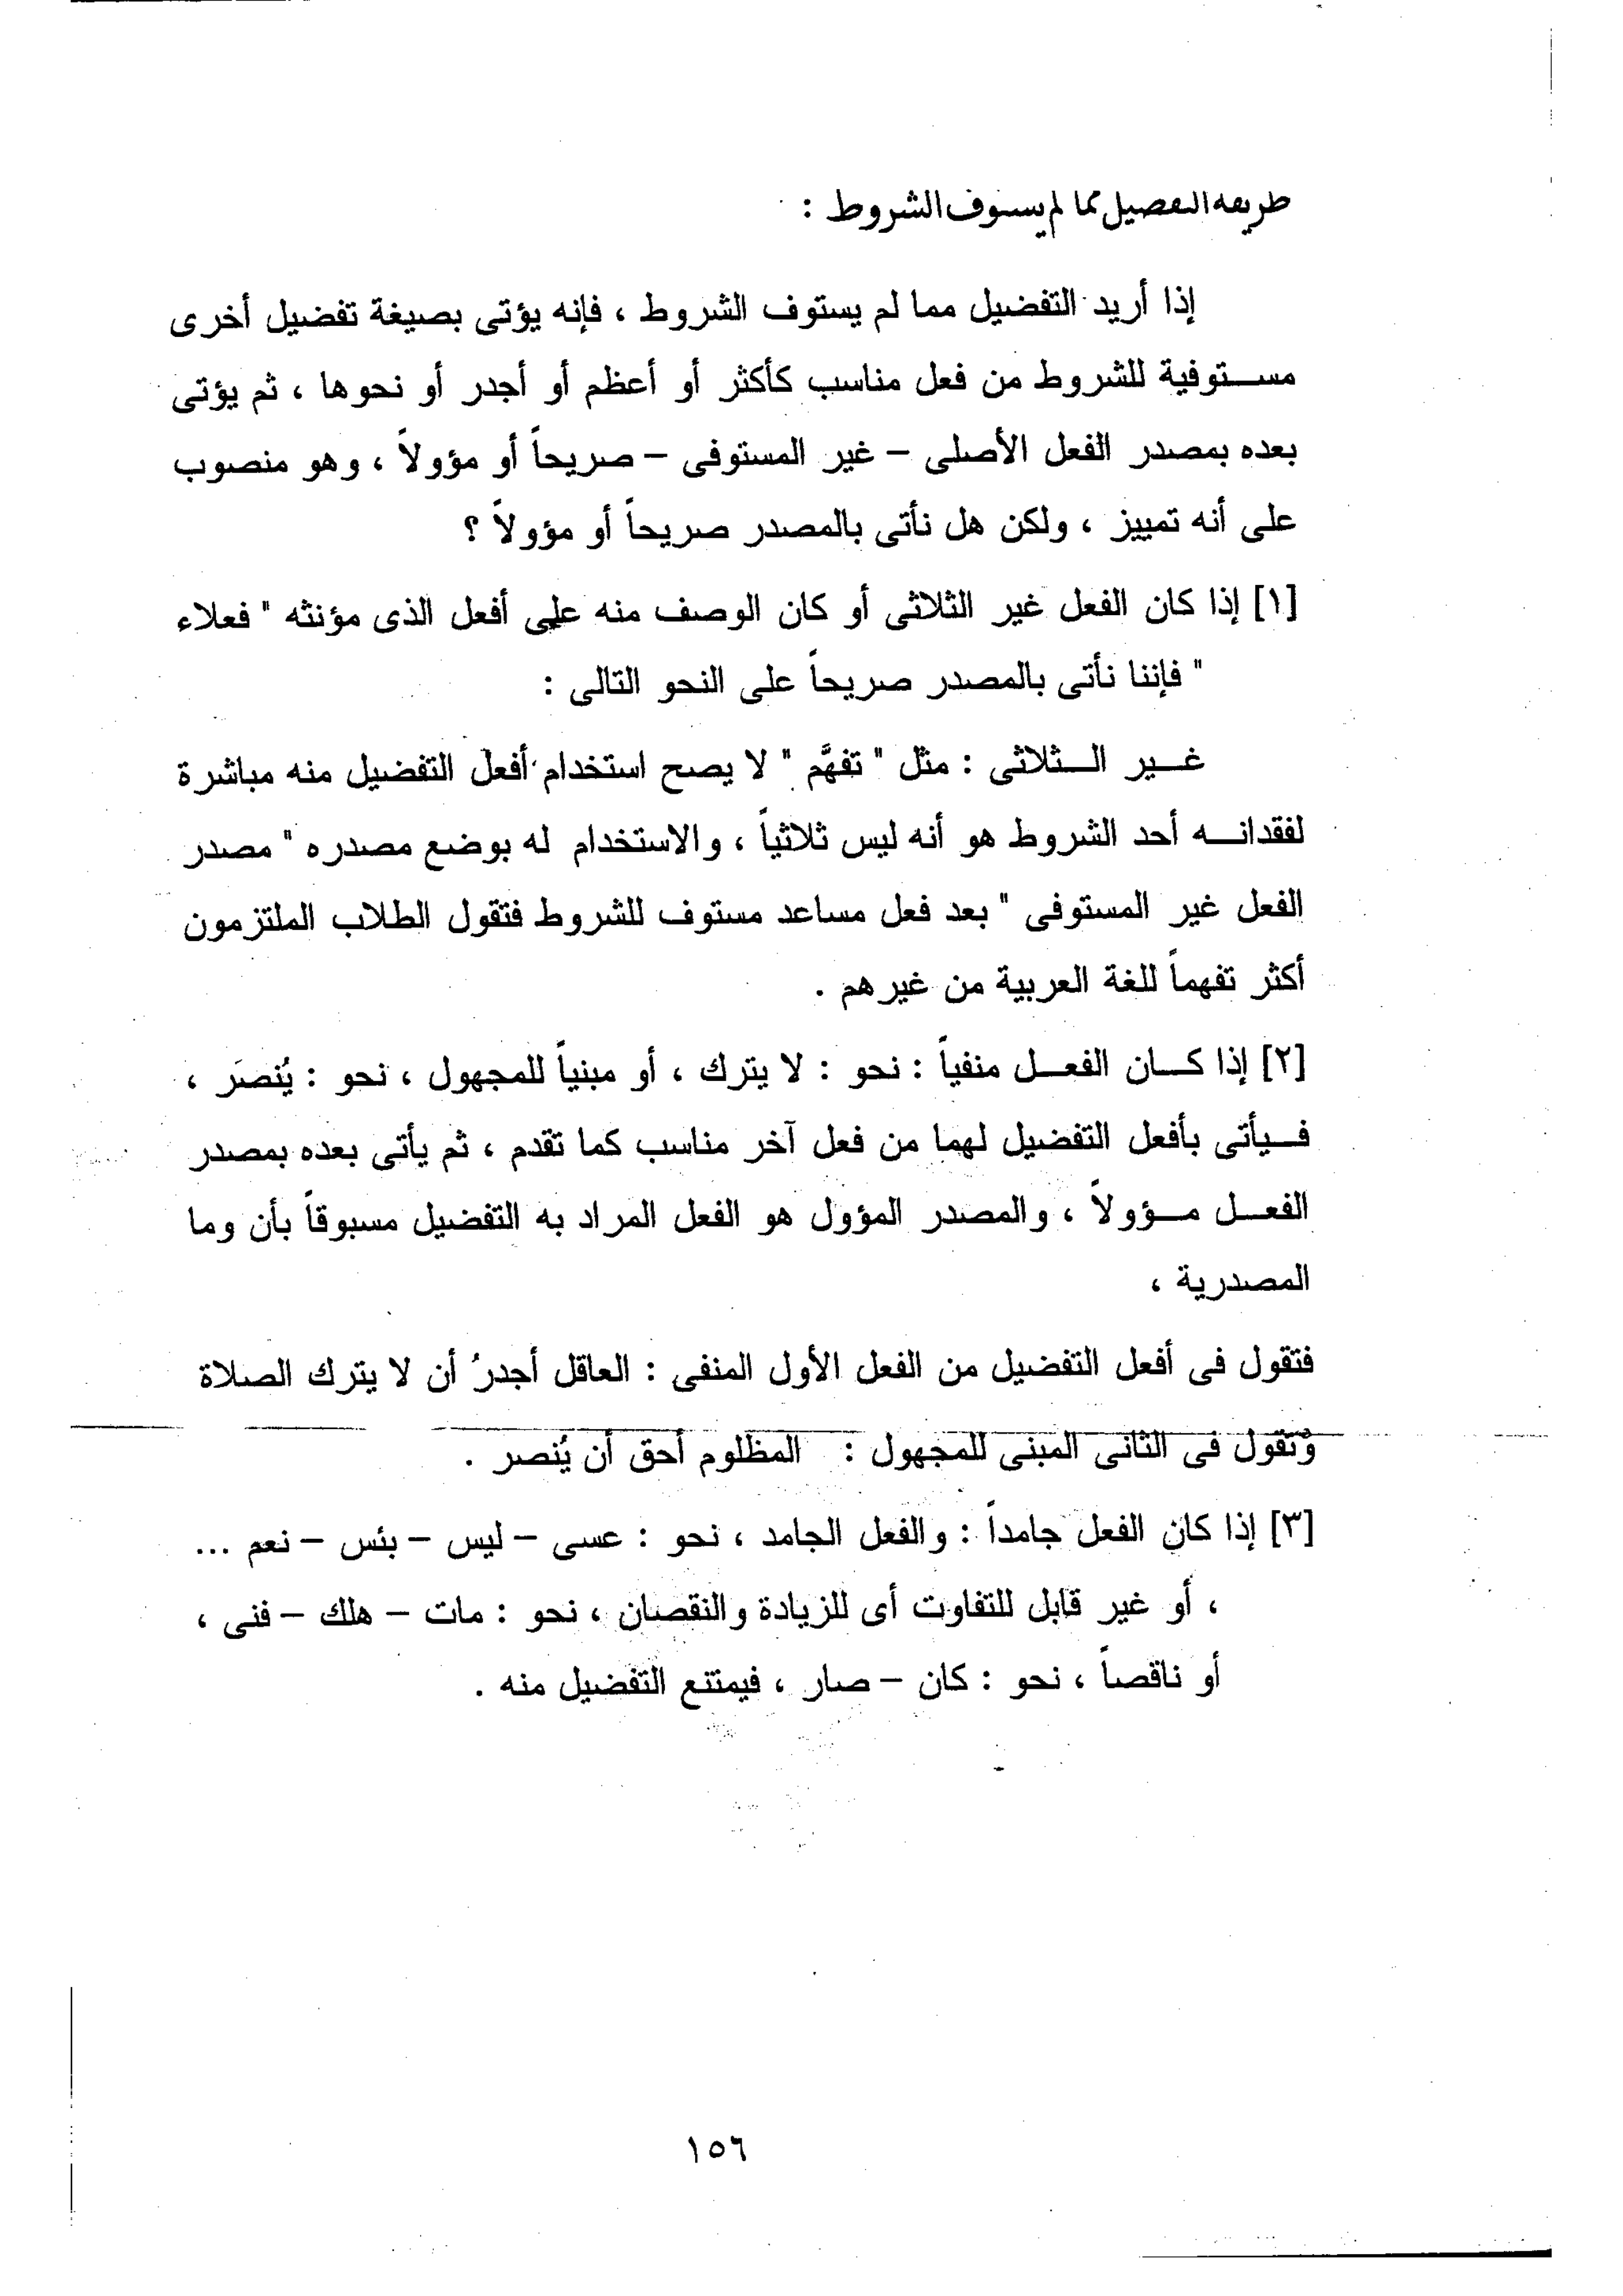 طريقة التفضيل مما لم يستوف الشروط :
إذا أريد التفضيل مما لم يستوف الشروط ، فإنه يؤتى بصيغة تفضيل أخرى
مستوفية للشروط من فعل مناسب كأكثر أو أعظم أو أجدر أو نحوها ، ثم يؤتى
بعده بمصدر الفعل الأصلى – غير المستوفى – صريحاً أو مؤولاً ، وهو منصوب
على أنه تمييز ، ولكن هل نأتى بالمصدر صريحاً أو مؤولاً ؟
[١] إذا كان الفعل غير الثلاثى أو كان الوصف منه على أفعل الذى مؤنثه " فعلاء
" فإننا نأتى بالمصدر صريحاً على النحو التالى :
غير الثلاثى : مثل " تفهَّم " لا يصح استخدام أفعل التفضيل منه مباشرة
لفقدانه أحد الشروط هو أنه ليس ثلاثياً ، والاستخدام له بوضع مصدره " مصدر
الفعل غير المستوفى " بعد فعل مساعد مستوف للشروط فتقول الطلاب الملتزمون
أكثر تفهماً للغة العربية من غيرهم .
[٢] إذا كان الفعل منفياً : نحو : لا يترك ، أو مبنياً للمجهول ، نحو : يُنصَر ،
فيأتى بأفعل التفضيل لهما من فعل آخر مناسب كما تقدم ، ثم يأتى بعده بمصدر
الفعل مؤولاً ، والمصدر المؤول هو الفعل المراد به التفضيل مسبوقاً بأن وما
المصدرية ،
فتقول فى أفعل التفضيل من الفعل الأول المنفى : العاقل أجدرُ أن لا يترك الصلاة
وتقول فى الثانى المبنى للمجهول : المظلوم أحق أن يُنصر .
[٣] إذا كان الفعل جامداً : والفعل الجامد ، نحو : عسى – ليس – بئس – نعم ...
، أو غير قابل للتفاوت أى للزيادة والنقصان ، نحو : مات – هلك – فنى ،
أو ناقصاً ، نحو : كان – صار ، فيمتنع التفضيل منه .
١٥٦